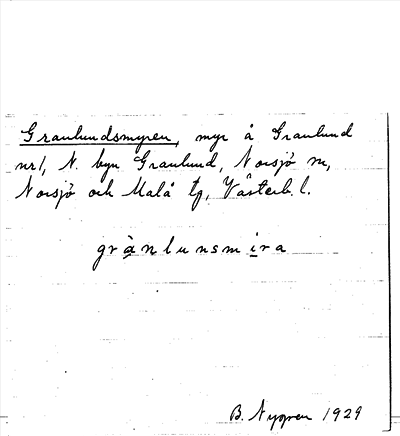 Granlundsmyren, myr å Granlund
nr1, N. byn Granlund, Norsjö sn,
Norsjö och Malå tg, Västerb. l.
grànlunsmira
B. Nygren 1929